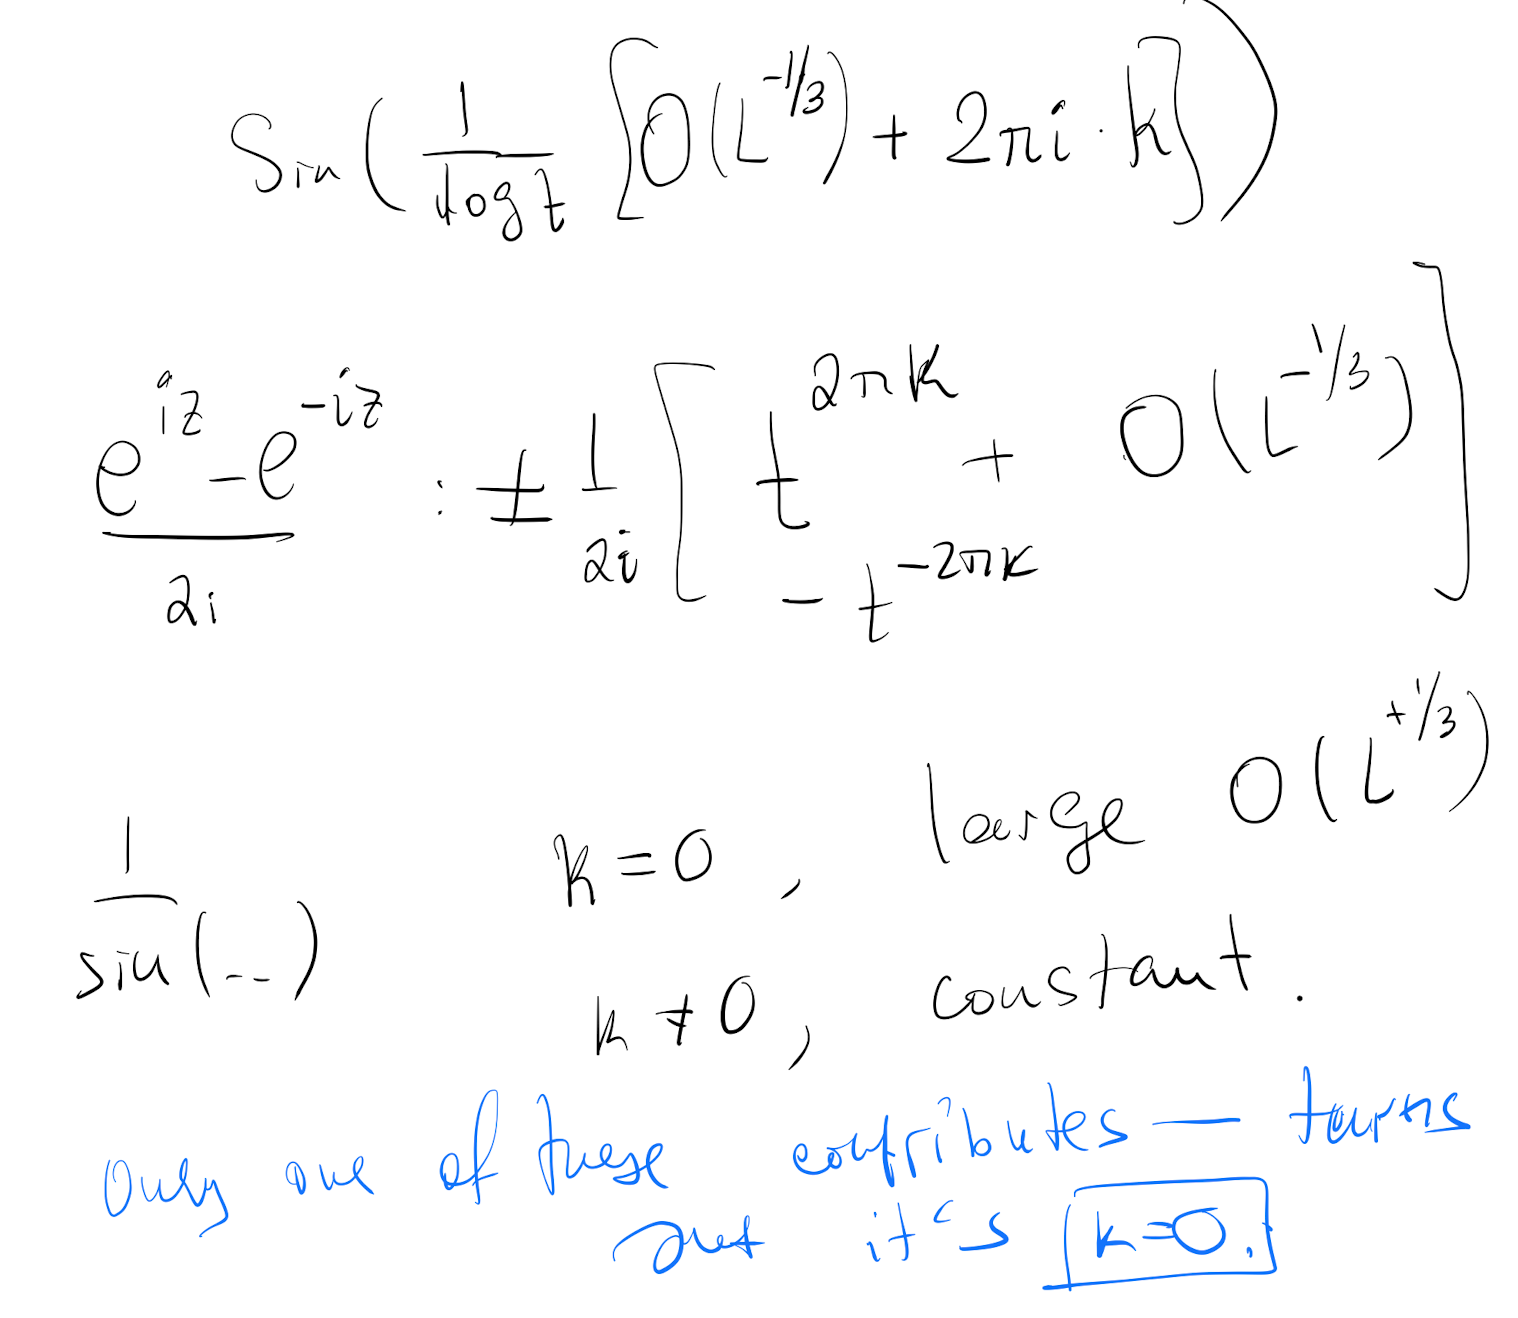 Sin( 1/log t [O(L^{-1/3}) + 2πi · k])
(e^{iz} - e^{-iz})/2i : ± 1/2i [ t^{2πk} + O(L^{-1/3})
- t^{-2πk} ]
1/sin(..) k = 0 , large O(L^{+1/3})
k ≠ 0 , constant .
Only one of these contributes — turns
out it's k=0.